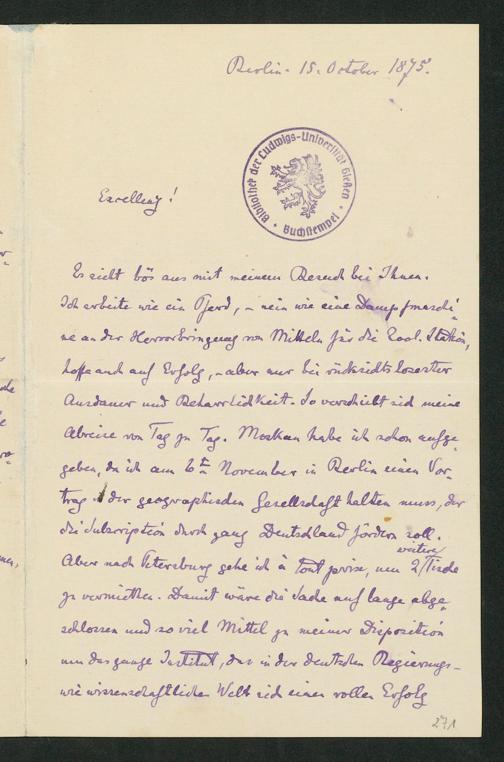 Berlin. 15. October 1875.
Bibliothek der Ludwigs-Universität Gießen
Buchstempel
Excellenz!
Es sieht bös aus mit meinem Besuch bei Ihnen.
Ich arbeite wie ein Pferd, – nein wie eine Dampfmaschi-
ne an der Hervorbringung von Mitteln für die Zool. Station,
hoffe auch auf Erfolg, – aber nur bei rücksichtslosester
Ausdauer und Beharrlichkeit. So verschiebt sich meine
Abreise von Tag zu Tag. Moskau habe ich schon aufge-
geben, da ich am 6ten November in Berlin einen Vor-
trag in der geographischen Gesellschaft halten muss, der
die Subscription durch ganz Deutschland fördern soll.
Aber nach Petersburg gehe ich à tout prix, um 2 weitere Tische
zu vermiethen. Damit wäre die Sache auf lange abge-
schlossen und so viel Mittel zu meiner Disposition
um das ganze Institut, das in der deutschen Regierungs-
wie wissenschaftlichen Welt sich einen vollen Erfolg
271